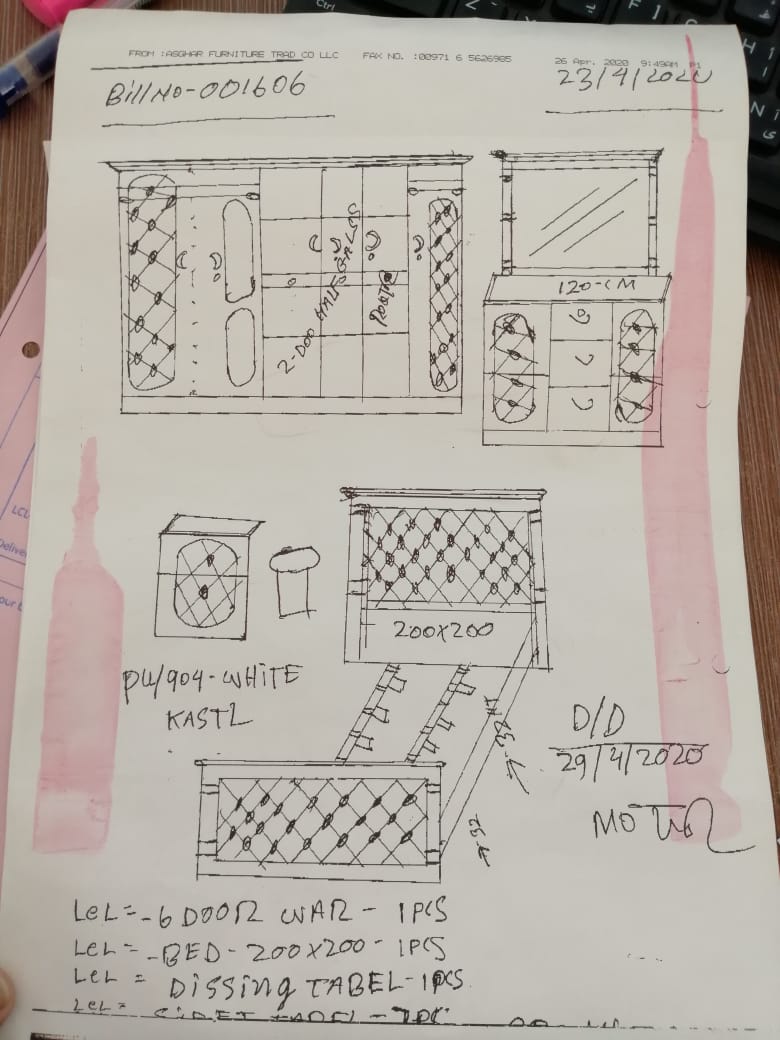 FROM :ASGHAR FURNITURE TRAD CO LLC FAX NO. :00971 6 5626985 26 Apr. 2020 9:49AM P1
Bill No-001606 23/4/2020
2-DOO HALF GALSS
120-CM
200X200
PU/904-WHITE
KASTL
D/D
29/4/2020
LeL=-6 DOOR WAR-1PCS
LeL=-BED-200X200-1PCS
LeL = DISSING TABEL-1PCS
LeL=